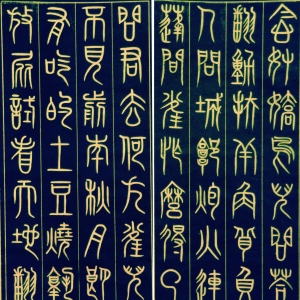 念奴嬌鳥兒問答
翻動扶羊角背負
人間城郭炮火連
蓬間雀怎麼得了
問君去何方雀兒
不見前年秋月朗
有吃的土豆燒熟
放屁試看天地翻